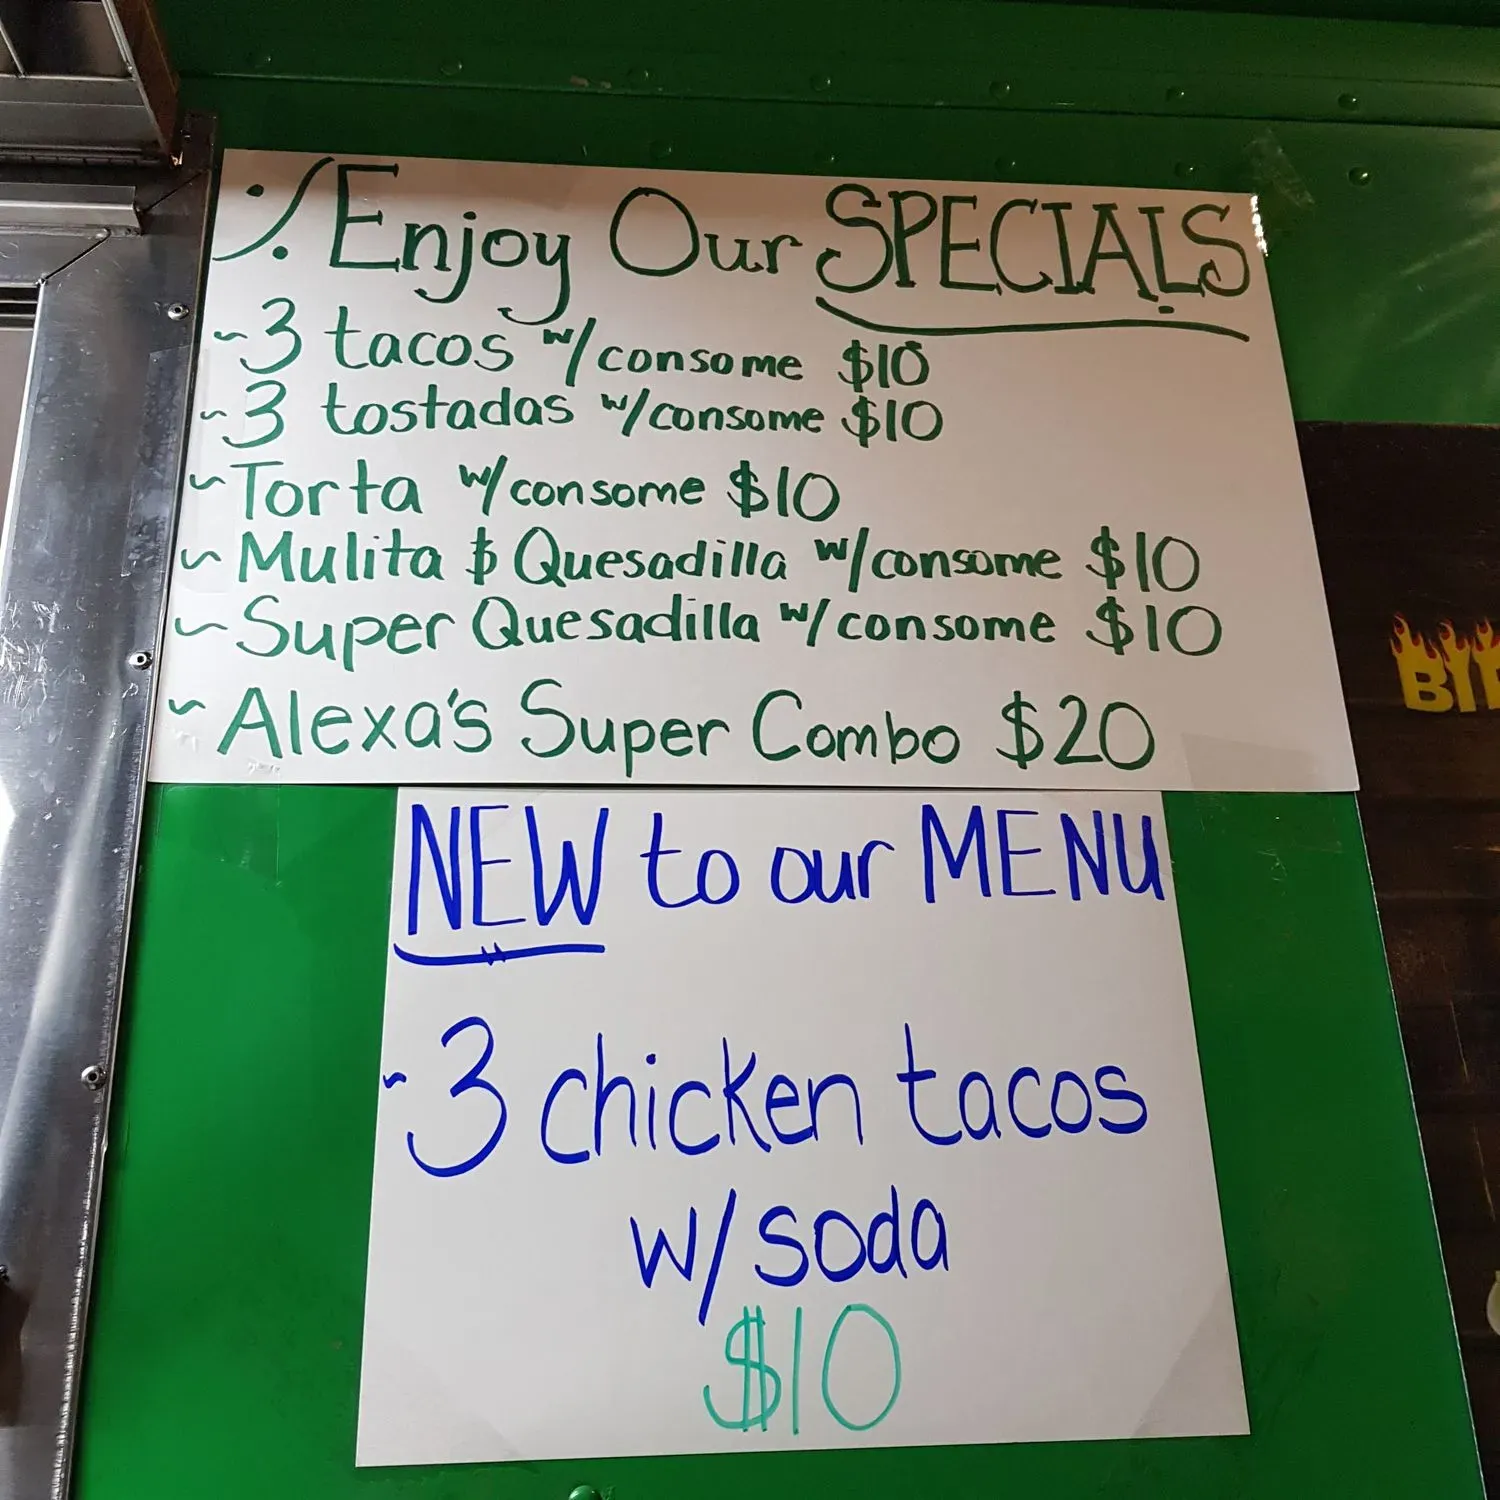 Enjoy Our SPECIALS
~3 tacos w/consome $10
~3 tostadas w/consome $10
~Torta w/consome $10
~Mulita & Quesadilla w/consome $10
~Super Quesadilla w/consome $10
~Alexa's Super Combo $20
NEW to our MENU
~3 chicken tacos
w/soda
$10